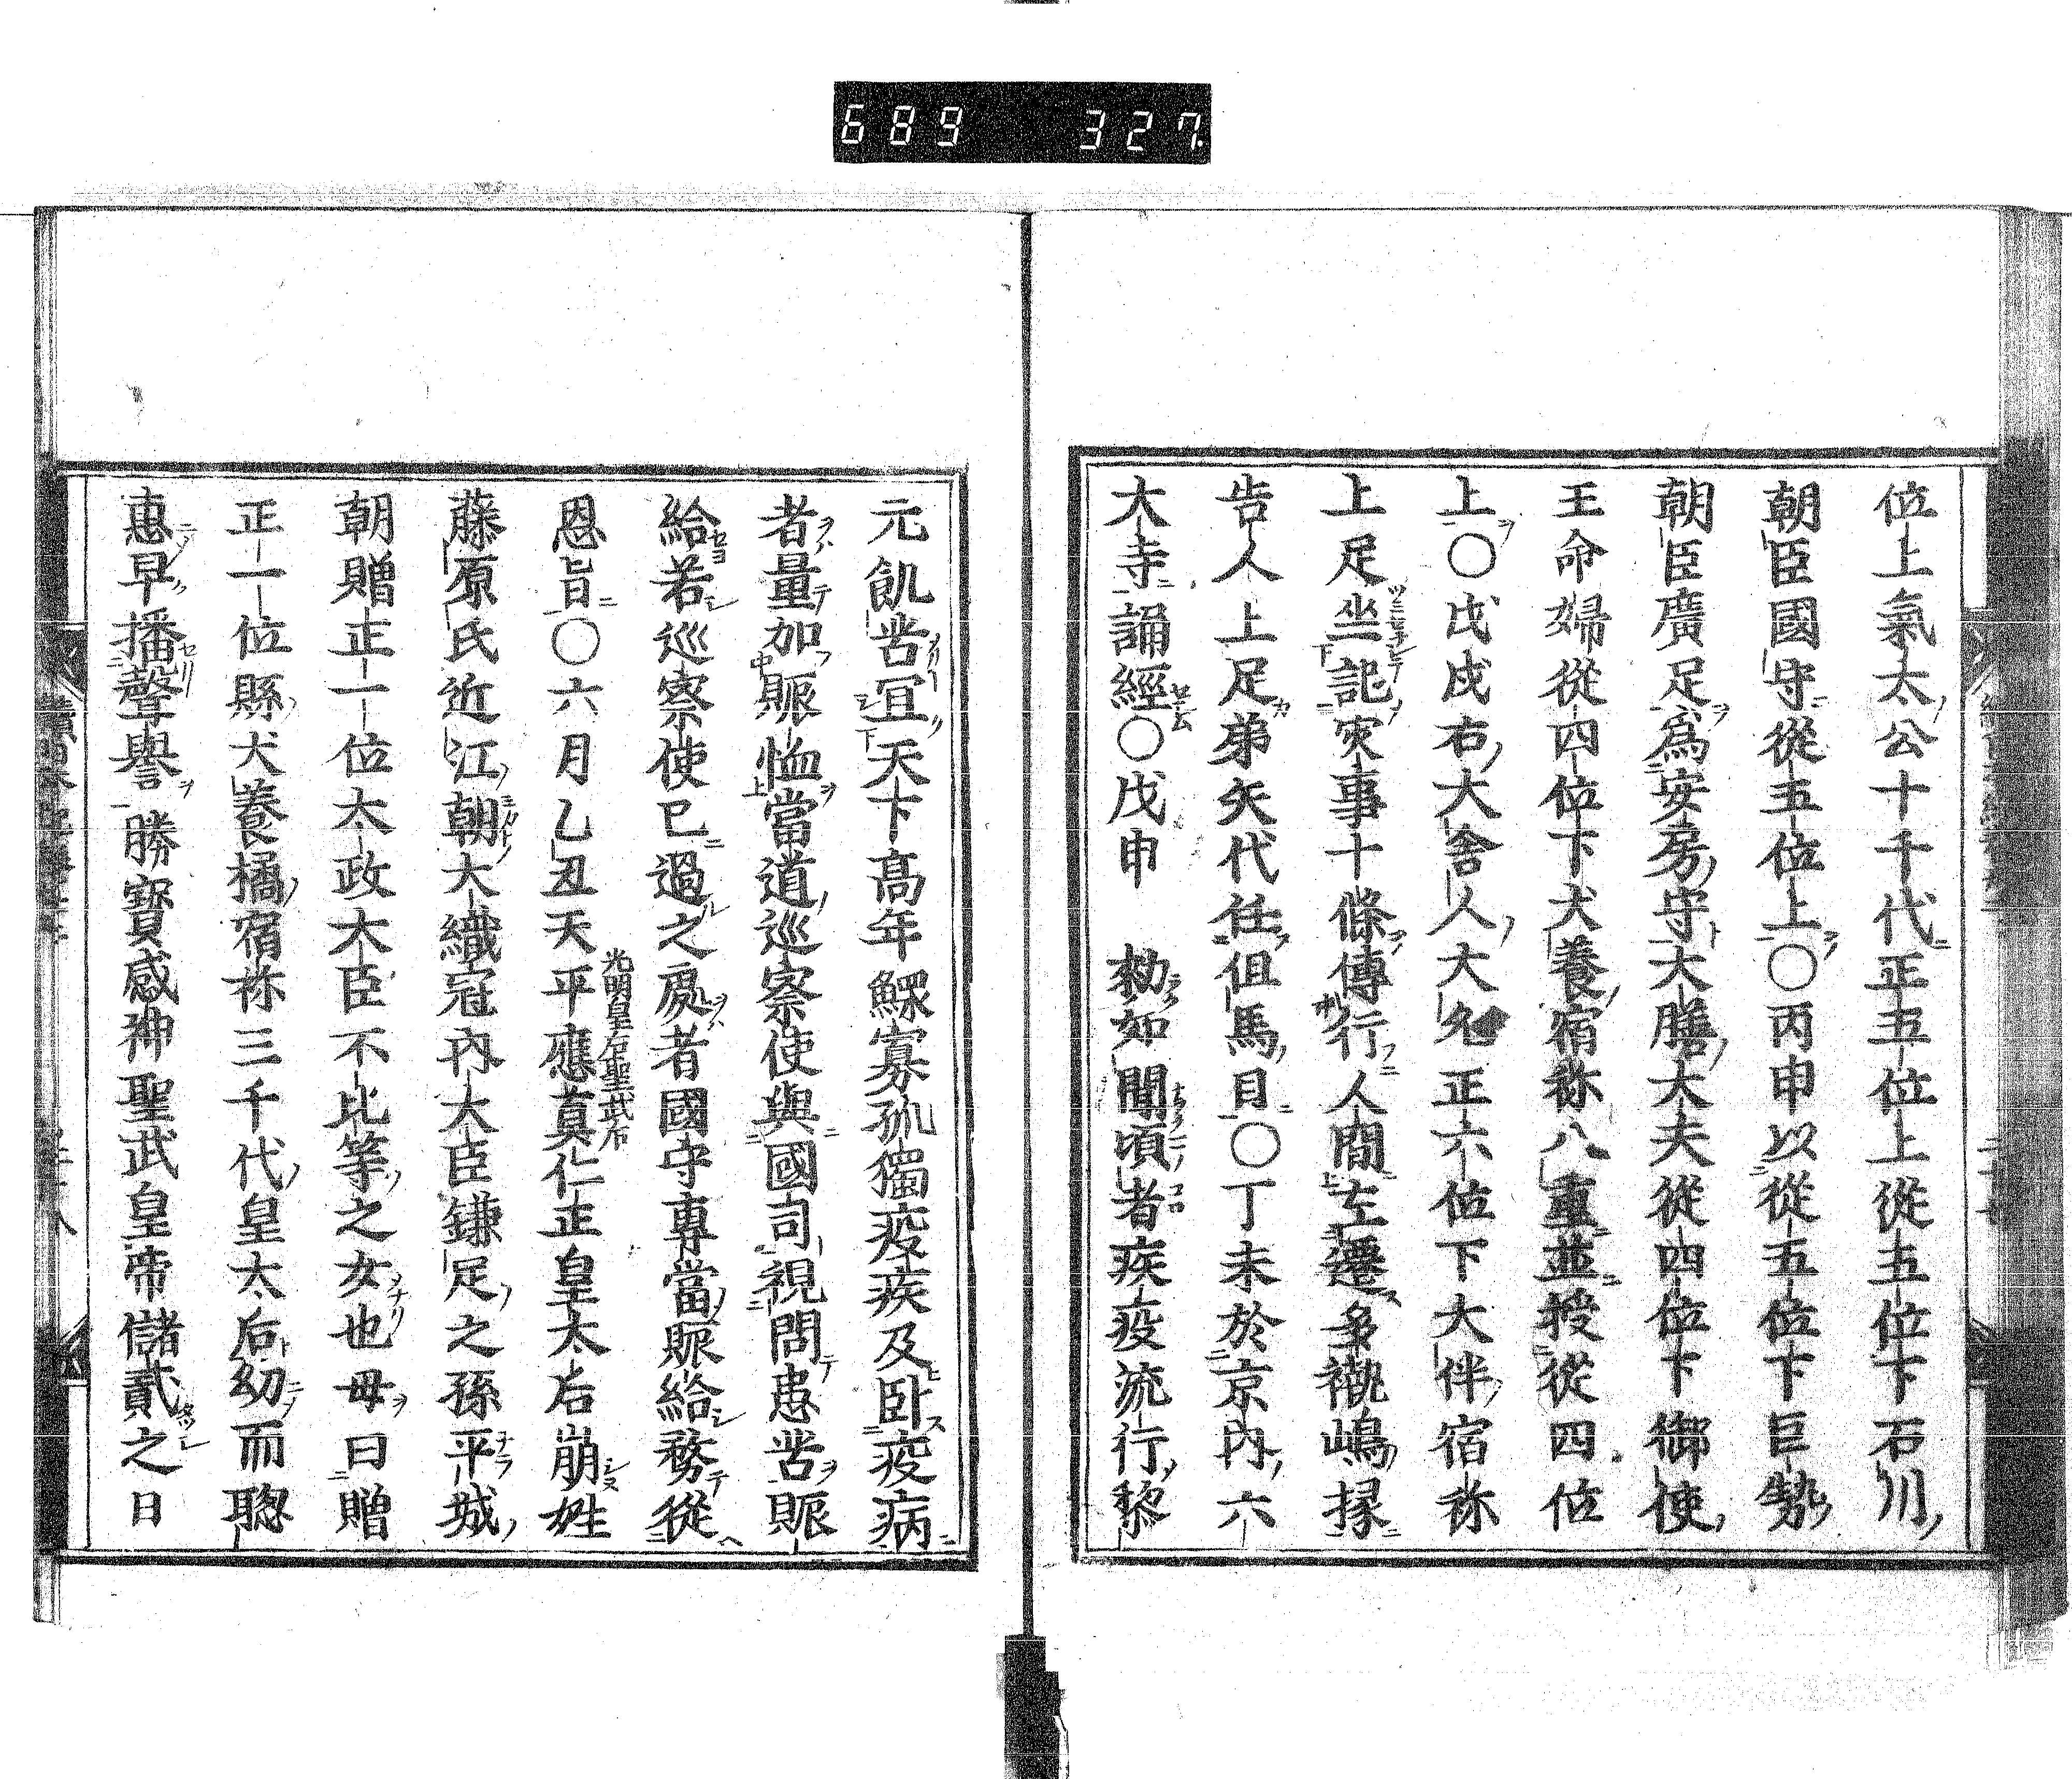 689 327
位上氣太公十千代正五位上從五位下石川
朝臣國守從五位上〇丙申以從五位下巨勢
朝臣廣足爲安房守大膳大夫從四位下御使
王命婦從四位下犬養宿祢八重並授從四位
上〇戊戌右大舍人大允正六位下大伴宿祢
上足坐記灾事十條傳行人間左遷多褹嶋掾
告人上足弟矢代任但馬目〇丁未於京内六
大寺誦經〇戊申 勑如聞頃者疾疫流行黎
元飢苦宜天下髙年鰥寡孤獨疫疾及卧疫病
者量加賑恤當道巡察使與國司視問患苦賑
給若巡察使已過之處者國守專當賑給務從
恩旨〇六月乙丑天平應真仁正皇太后崩姓
光明皇后聖武后
藤原氏近江朝大織冠内大臣鎌足之孫平城
朝贈正一位太政大臣不比等之女也母曰贈
正一位縣犬養橘宿祢三千代皇太后幼而聰
惠早播聲譽勝寳感神聖武皇帝儲貳之日